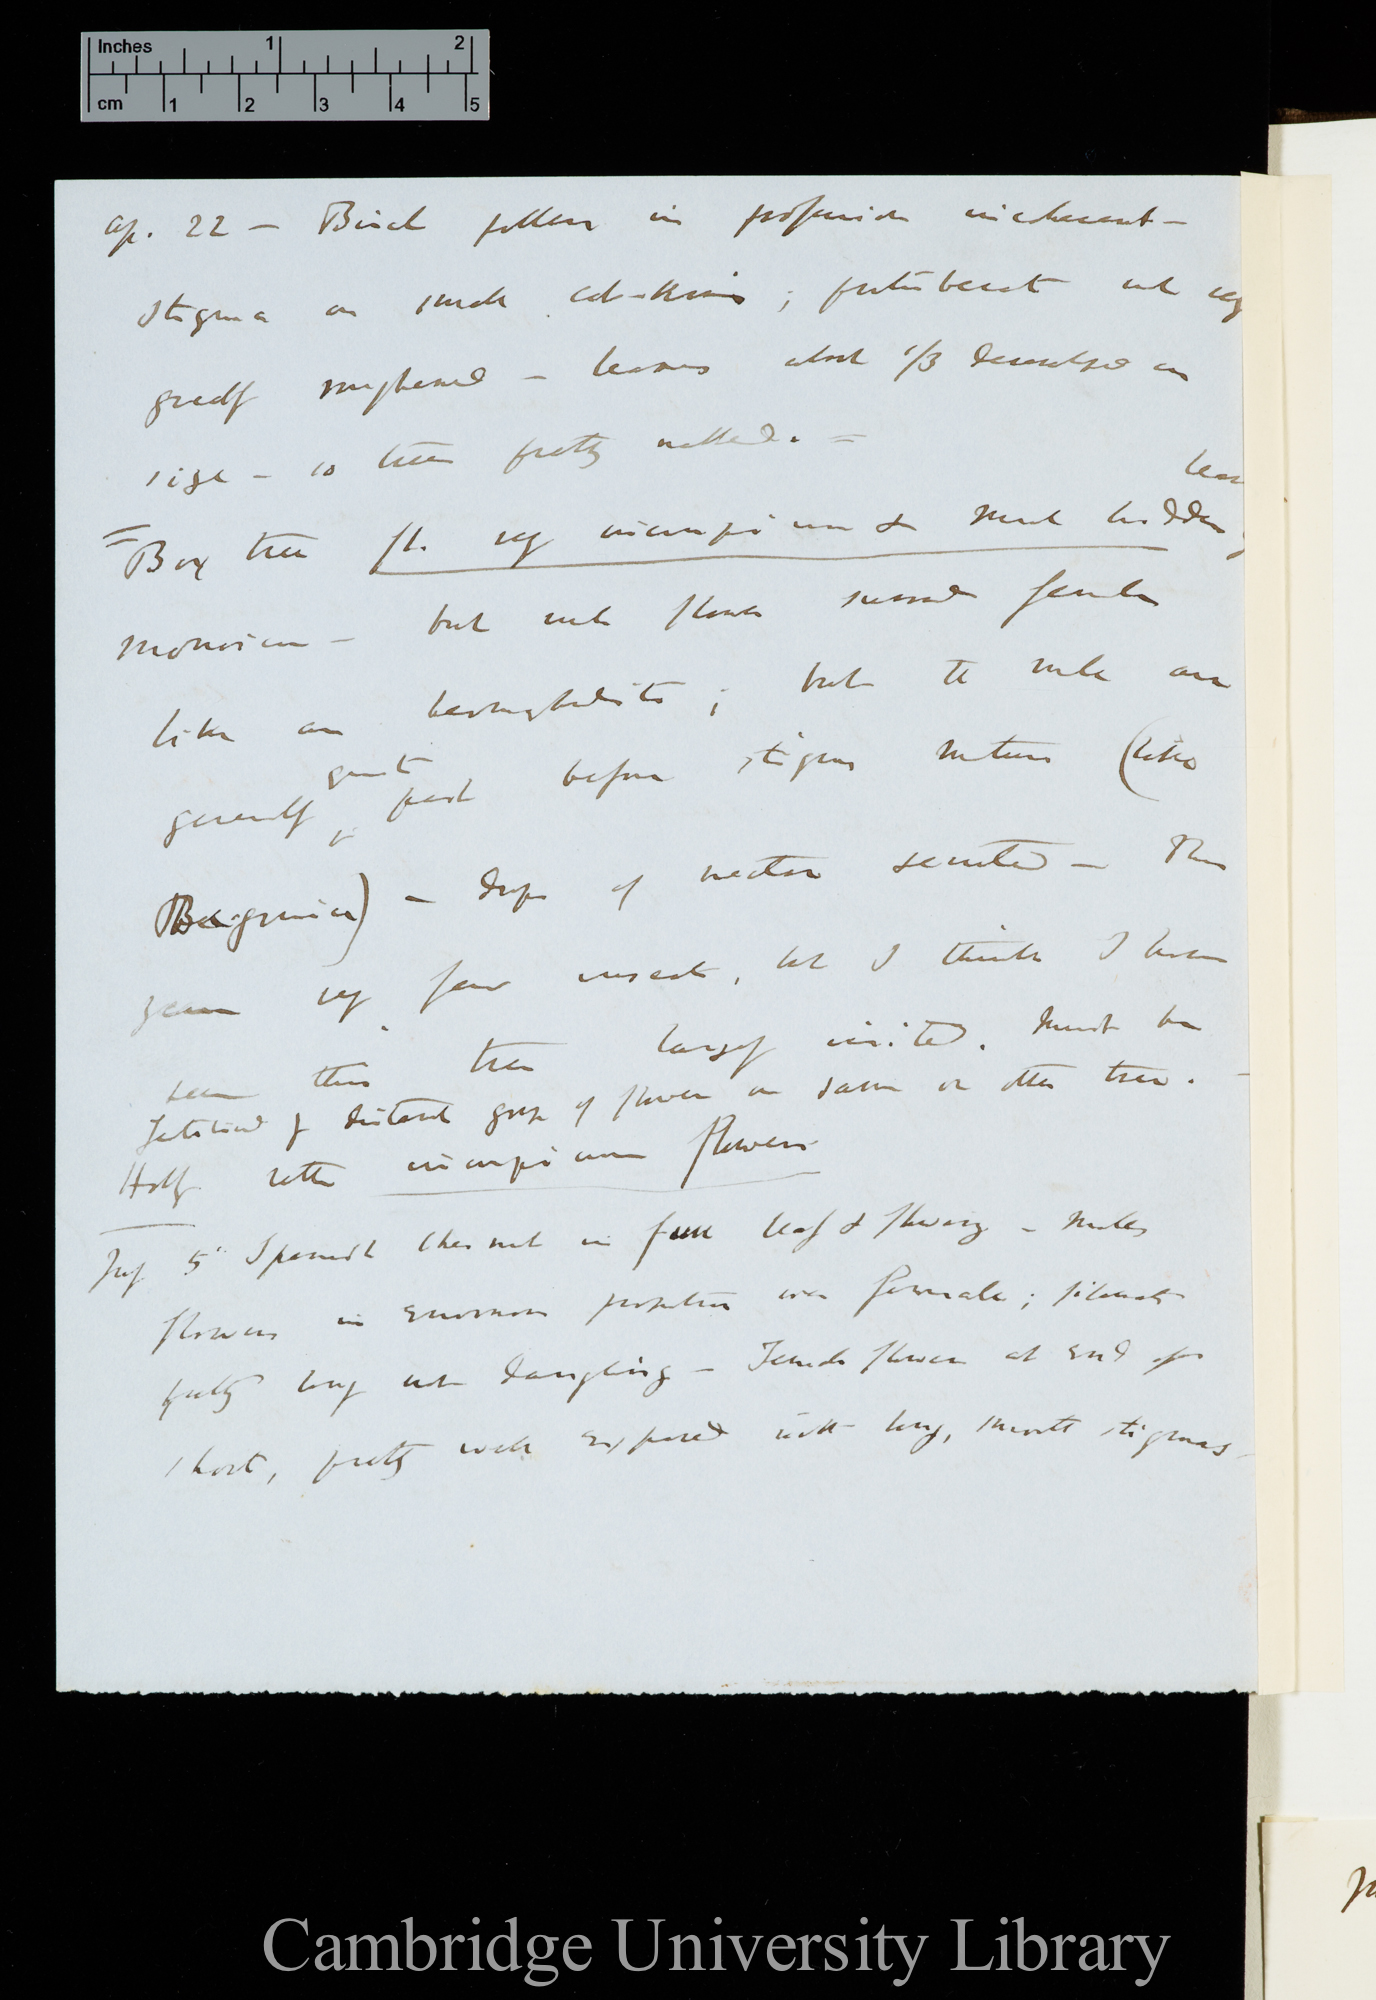 Inches 1 2
cm 1 2 3 4 5
Ap. 22 — Birch pollen in profusion incoherent —
stigma on small catkins; protuberant not very
greatly roughened — leaves about 1/3 developed in
size — so tree pretty naked. =
leaves
= Box tree fl. very inconspicuous & much hidden by
monoicous — but male flowers surround female
like an hermaphrodite; but the male are
generally quite past before stigmas mature (like
Begonia) — drops of nectar secreted — This
year very few insects, but I think I have
seen this tree largely visited. Must be
fertilised by distant group of flowers on same or other tree.
Holly rather inconspicuous flowers
July 5th Spanish Chesnut in full leaf & flowering — Males
flowers in enormous proportion over female; filaments
pretty long not dangling — Female flowers at end of
short, pretty well exposed with long, smooth stigmas —
Cambridge University Library